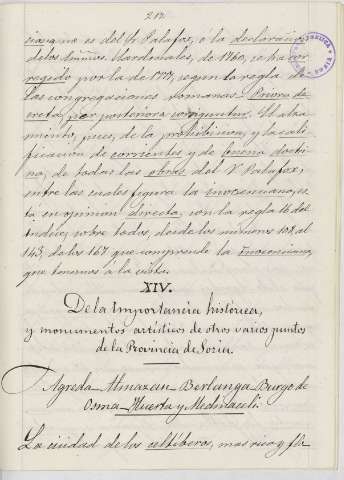 212
ciasa no es del V. Palafox, o la declaración
de los Cardenales, de 1760, se ha cor-
regido por la de 177, segun la regla de
las congregaciones romanas. Priora de-
creta per posteriora corriguntur. El alza-
miento, pues, de la prohibicion, y la cali-
ficacion de corrientes y de buena doctri-
na, de todas las obras del V. Palafox,
entre las cuales figura la inocenciana, es-
tá en oposicion directa, con la regla 16 del
Indice, sobre todo, desde los números 108 al
143, de los 167 que comprende la Inocenciana,
que tenemos á la vista.
XIV.
De la Importancia histórica,
y monumentos artísticos de otros varios puntos
de la Provincia de Soria.
Agreda Almazan Berlanga Burgo de
Osma Huerta y Medinaceli.
La ciudad de los celtíberos, mas rica y flo-